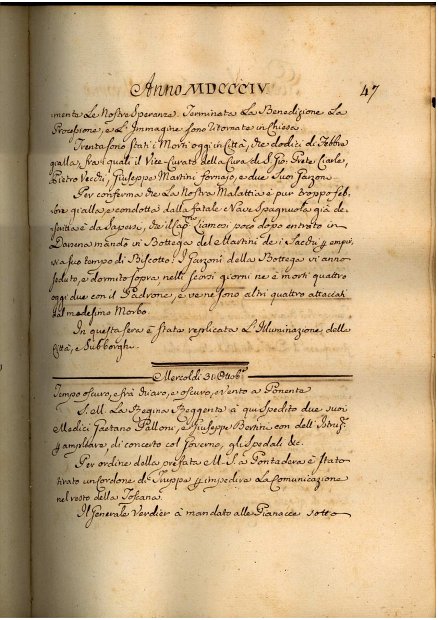 Anno MDCCCIV 47
mente Le Nostre Speranze. Terminata La Benedizione La
Processione, e L'Immagine sono Ritornate in Chiesa.
Trenta sono Stati i Morti oggi in Città, che dodici di Febbre
gialla, fra i quali il Vice-Curato della Cura di S. Gio: Prete Ciarle,
Pietro Vecchi, Giuseppe Martini fornajo, e due Suoi Garzoni.
Per conferma che La Nostra Malattia è pur troppo feb-
bre gialla, e condotta dalla fatale Nave Spagnuola già de-
scritta è da Sapersi, che il Cap.no Llamosi poco dopo entrato in
Darsena mandò in Bottega del Martini de i Sacchi p empir-
si a suo tempo di Biscotto. I Garzoni della Bottega vi anno
seduto, e dormito sopra; nelli scorsi giorni ne è morti quattro
oggi due con il Padrone, e ve ne sono altri quattro attaccati
dal medesimo Morbo.
In questa sera è stata replicata L'Illuminazione della
Città, e Subborghi.
Mercoldì 31 Ottob.e
Tempo oscuro, e frà chiaro, e oscuro, e Vento a Ponente
S. M. La Regina Reggente à qui Spedito due suoi
Medici Gaetano Palloni, e Giuseppe Bertini con dell' Istruz.
p ampliare, di concerto col Governo, gli Spedali &c.
Per ordine della prefata M. S. a Pontadera è Stato
tirato un Cordone di Truppa p impedire La Comunicazione
nel resto della Toscana.
Il Generale Verdier à mandato alle Pianacce sotto